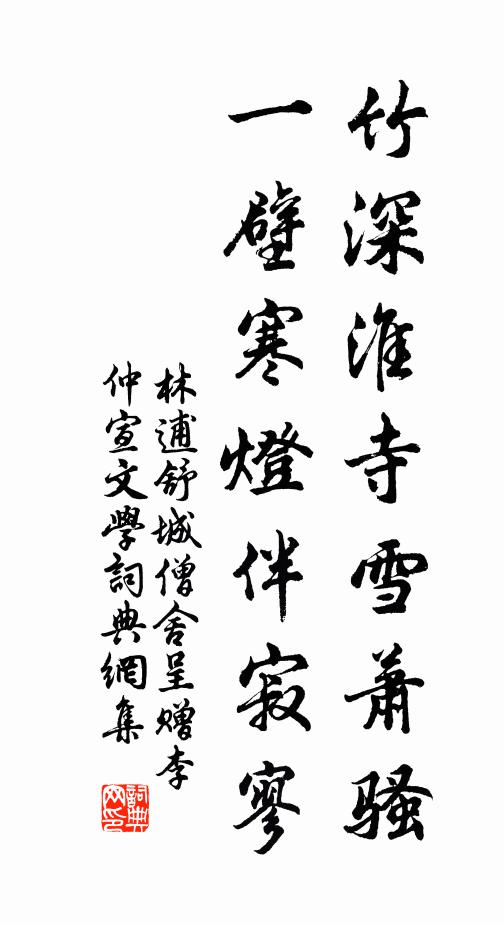 竹深淮寺雪萧骚
一壁寒燈伴寂寥
林逋舒城僧舍呈赠李
仲宣文學詞典網集
詞典
网印